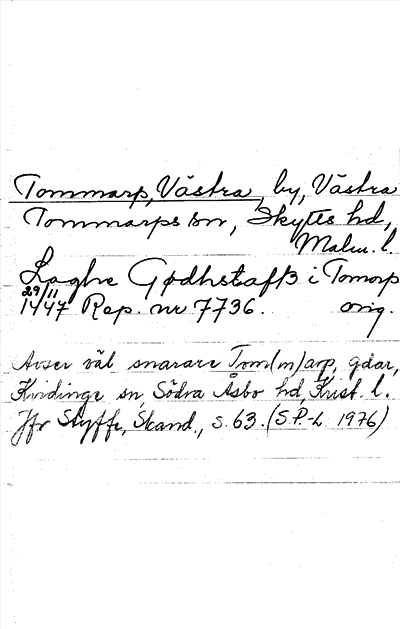 Tommarp, Västra, by, Västra
Tommarps sn, Skytts hd,
Malm. l.
Laghe Gødhstafß i Tomorp
29/11 1447 Rep. nr 7736. orig.
Avser väl snarare Tom(m)arp, gdar,
Kvidinge sn, Södra Åsbo hd, Krist. l.
Jfr Styffe, Skand., s. 63. (S.P-L 1976)